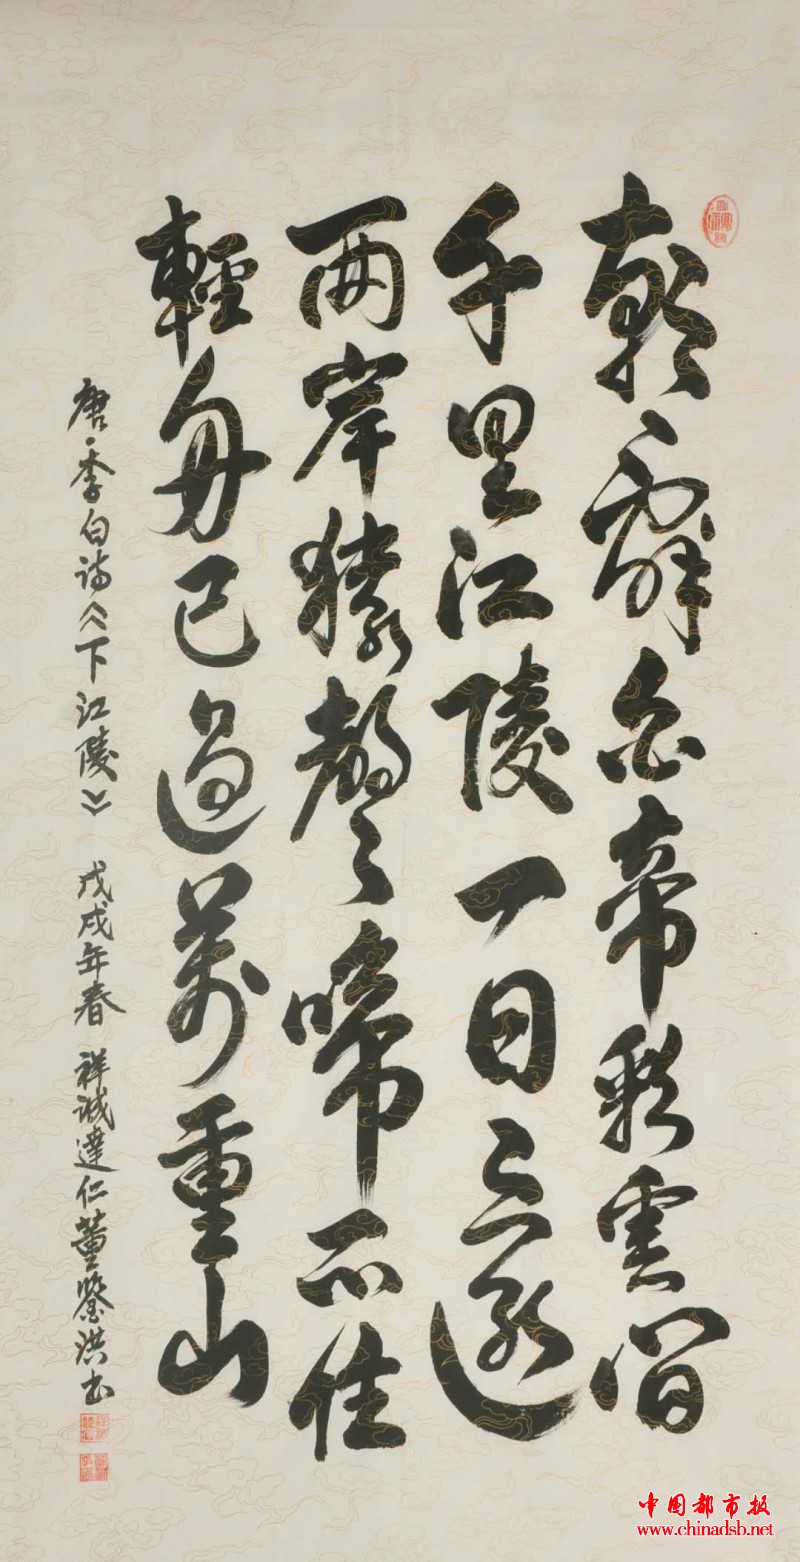 朝辭白帝彩雲間
千里江陵一日還
兩岸猿聲啼不住
輕舟已過萬重山
唐·李白诗《下江陵》 戊戌年春 祥诚達仁董鑒洪书
中国都市报
www.chinadsb.net